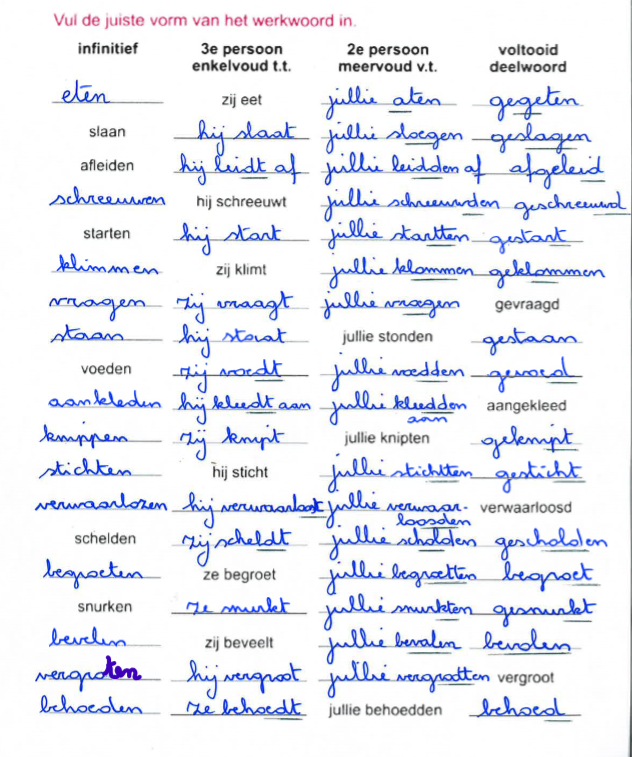 Vul de juiste vorm van het werkwoord in.
infinitief 3e persoon enkelvoud t.t. 2e persoon meervoud v.t. voltooid deelwoord
eten zij eet jullie aten gegeten
slaan hij slaat jullie sloegen geslagen
afleiden hij leidt af jullie leidden af afgeleid
schreeuwen hij schreeuwt jullie schreeuwden geschreeuwd
starten hij start jullie startten gestart
klimmen zij klimt jullie klommen geklommen
vragen zij vraagt jullie vroegen gevraagd
staan hij staat jullie stonden gestaan
voeden zij voedt jullie voedden gevoed
aankleden hij kleedt aan jullie kleedden aan aangekleed
knippen zij knipt jullie knipten geknipt
stichten hij sticht jullie stichtten gesticht
verwaarlozen hij verwaarloost jullie verwaar-loosden verwaarloosd
schelden zij scheldt jullie scholden gescholden
begroeten ze begroet jullie begroetten begroet
snurken ze snurkt jullie snurkten gesnurkt
bevelen zij beveelt jullie bevalen bevolen
vergroten hij vergroot jullie vergrootten vergroot
behoeden ze behoedt jullie behoedden behoed